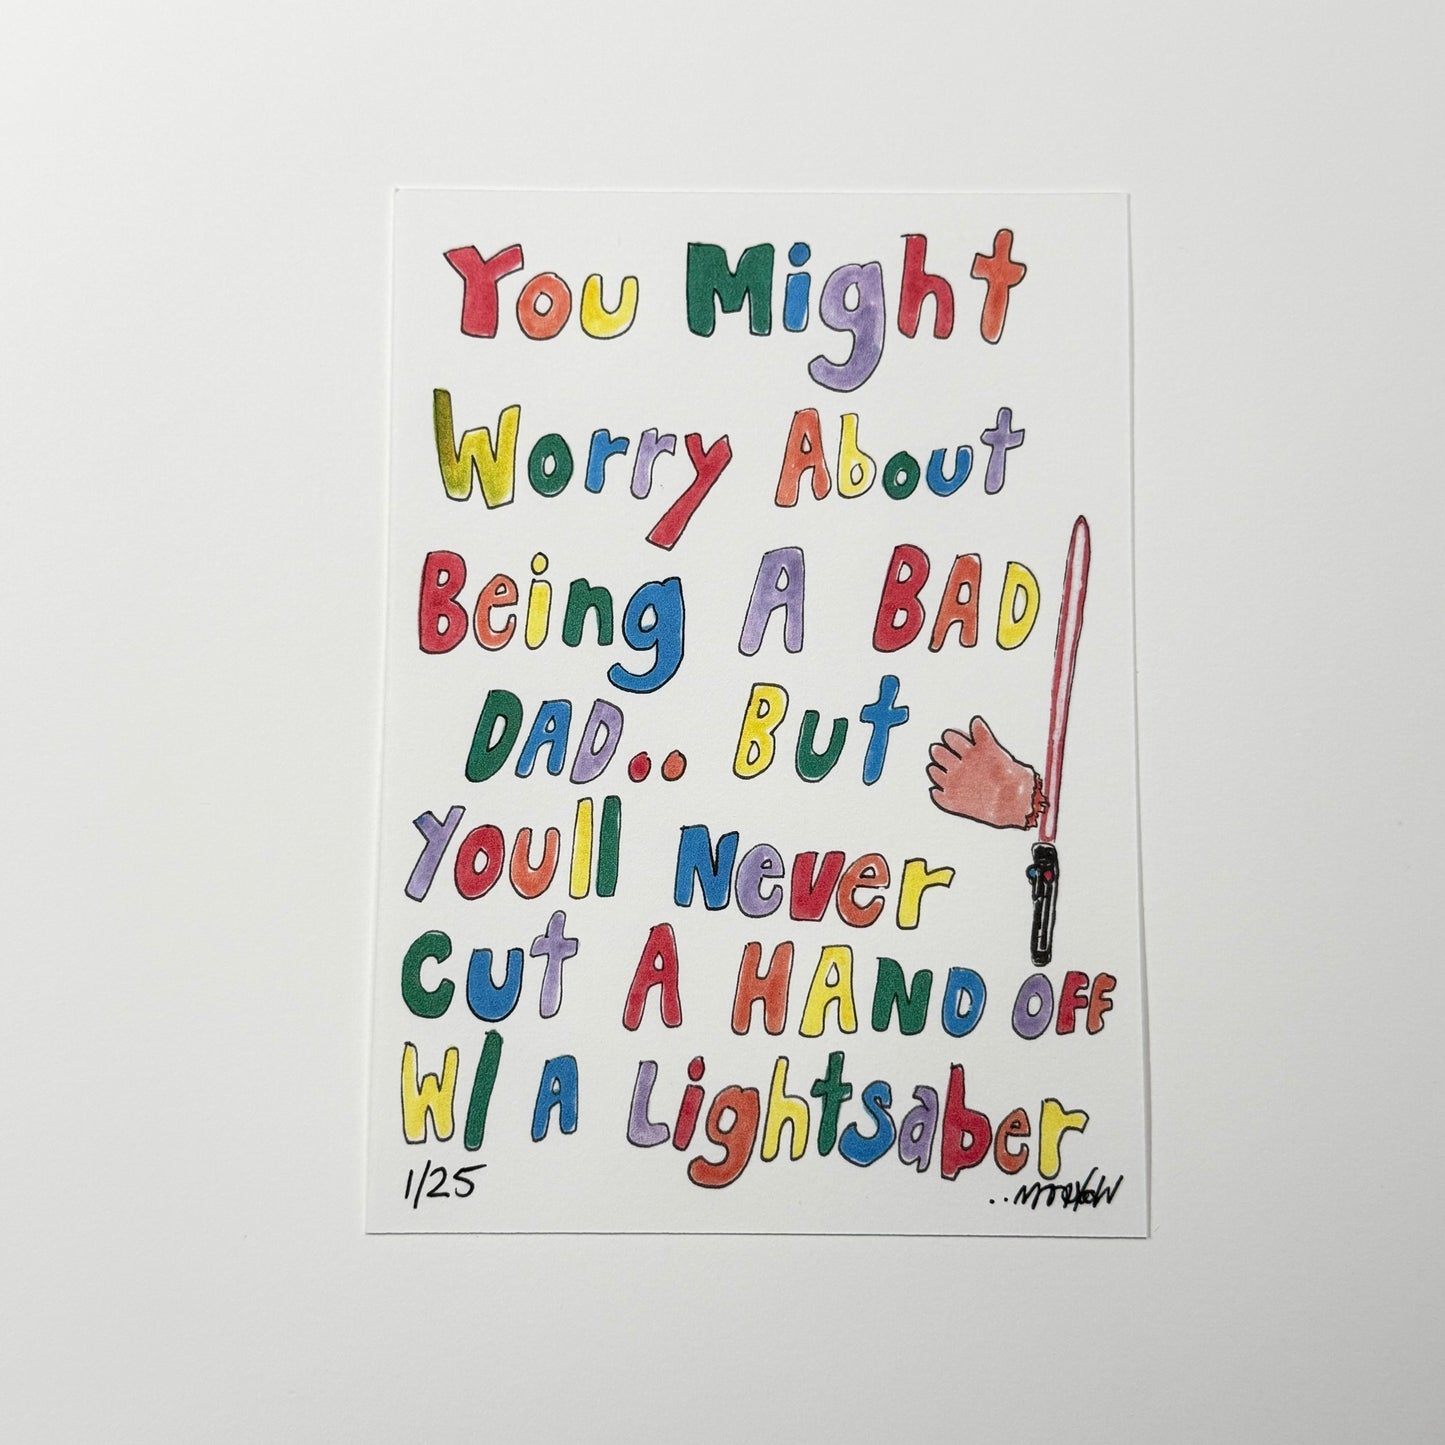 You Might
Worry About
Being A BAD
DAD.. But
Youll Never
Cut A HAND OFF
W/ A Lightsaber
1/25